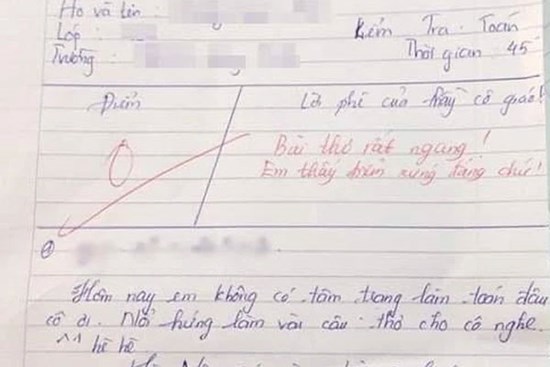 Họ và tên :
Kiểm Tra Toán
Lớp :
Thời gian 45'
Trường :
Điểm
Lời phê của thầy cô giáo!
0
Bài thơ rất ngang !
Em thấy điểm xứng đáng chứ!
Hôm nay em không có tâm trạng làm toán đâu
cô ơi. Nổi hứng làm vài câu thơ cho cô nghe.
^^ hê hê